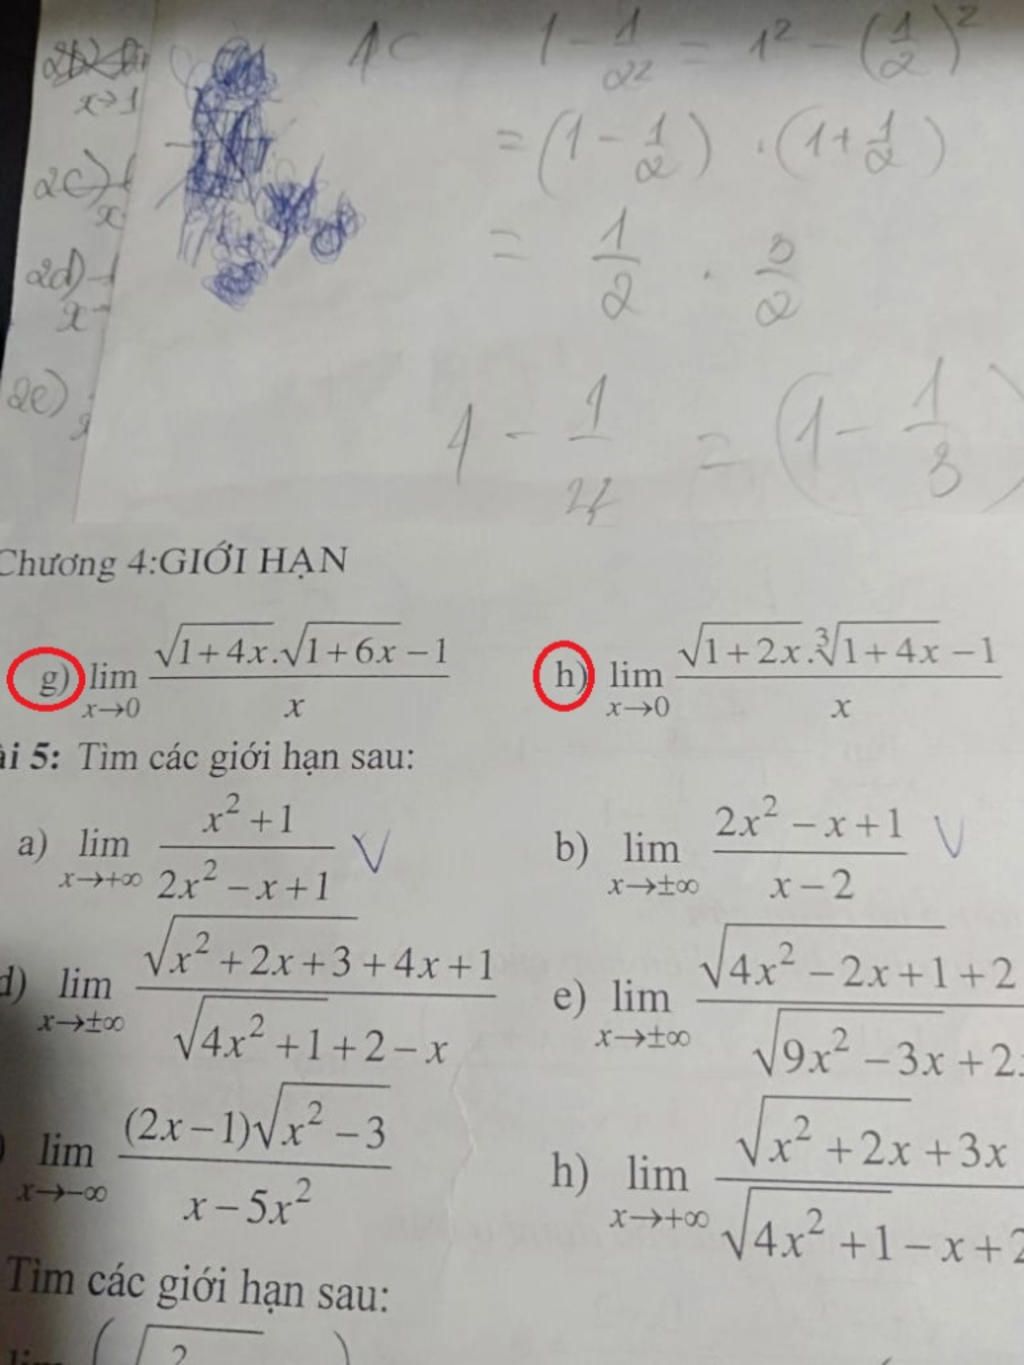 2b) lim
x→1
1c 1 - 1/2² = 1² - (1/2)²
2c)
x
= (1 - 1/2) . (1 + 1/2)
2d)
x
= 1/2 . 3/2
2e)
1 - 1/4 = (1 - 1/3)
Chương 4:GIỚI HẠN
g) lim x→0 (√(1+4x).√(1+6x) −1)/x h) lim x→0 (√(1+2x).∛(1+4x) −1)/x
ài 5: Tìm các giới hạn sau:
a) lim x→+∞ (x²+1)/(2x²−x+1) V b) lim x→±∞ (2x²−x+1)/(x−2) V
d) lim x→±∞ (√(x²+2x+3)+4x+1)/(√(4x²+1)+2−x) e) lim x→±∞ (√(4x²−2x+1)+2)/(√(9x²−3x)+2
) lim x→−∞ ((2x−1)√(x²−3))/(x−5x²) h) lim x→+∞ (√(x²+2x)+3x)/(√(4x²+1)−x+2
Tìm các giới hạn sau:
lim